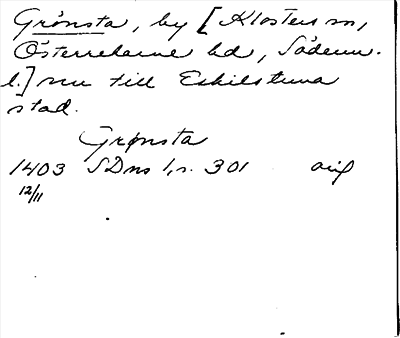 Grönsta, by [Klosters sn,
Österrekarne hd, Söderm.
l.] nu till Eskilstuna
stad.
Grønsta
1403 SDns 1, s. 301 orig
12/11